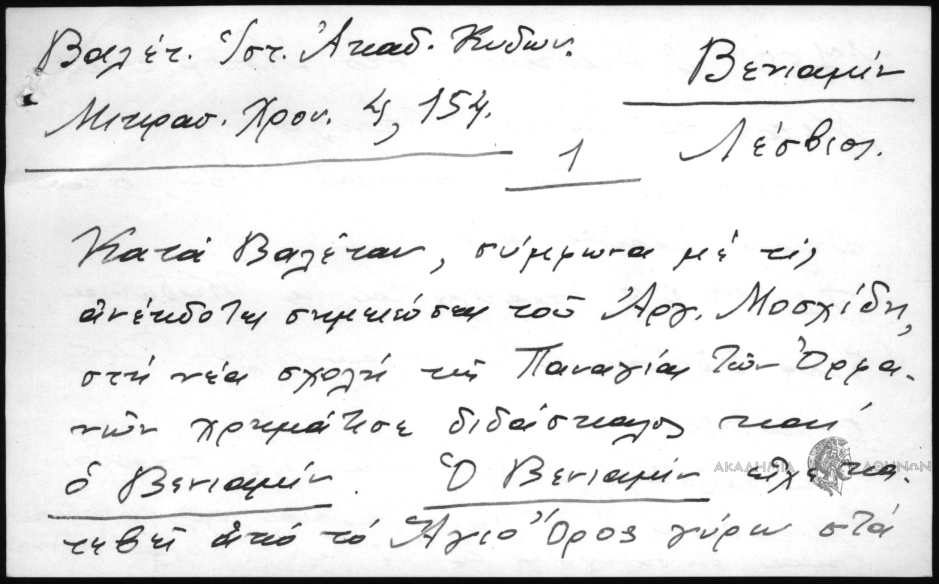 Βαλέτ. Ἱστ. Ἀκαδ. Κυδων.
Μικρασ. Χρον. 4, 154.
1
Βενιαμίν
Λέσβιος.
Κατὰ Βαλέταν, σύμφωνα μὲ τὶς
ἀνέκδοτες σημειώσεις τοῦ Ἀργ. Μοσχίδη,
στὴ νέα σχολὴ τῆς Παναγίας τῶν Ὀρφα-
νῶν χρημάτισε διδάσκαλος καὶ
ὁ Βενιαμίν. Ὁ Βενιαμίν εἶχε κα-
τεβῆ ἀπὸ τὸ Ἅγιο Ὄρος γύρω στὰ
ΑΚΑΔΗΜΙΑ ΑΘΗΝΩΝ